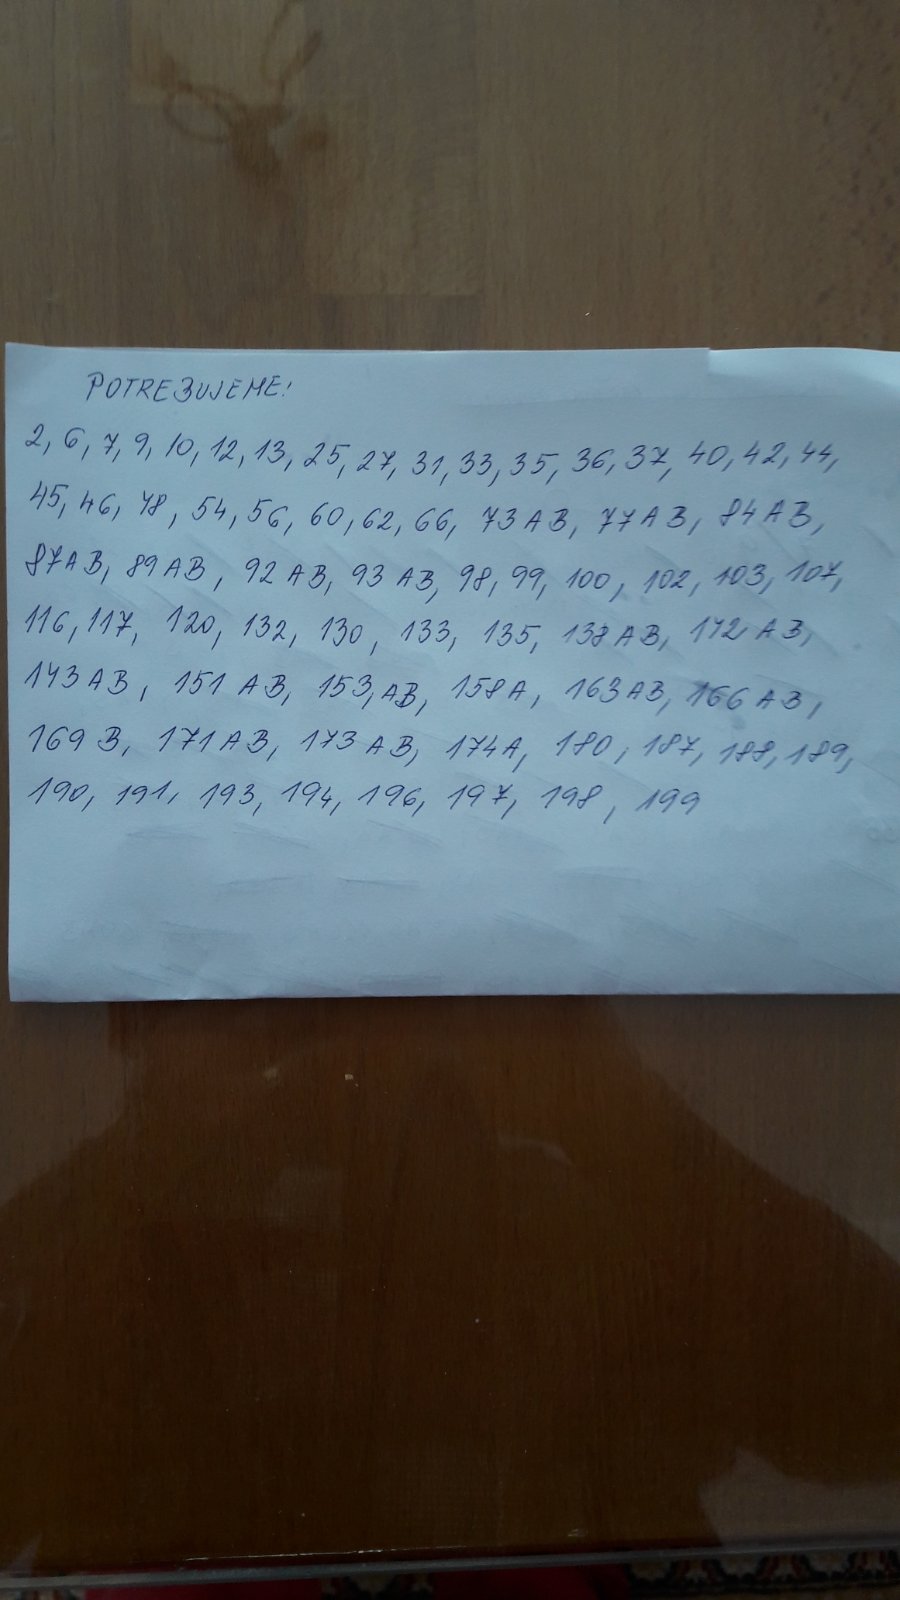 POTREBUJEME:
2, 6, 7, 9, 10, 12, 13, 25, 27, 31, 33, 35, 36, 37, 40, 42, 44,
45, 46, 48, 54, 56, 60, 62, 66, 73 AB, 77 AB, 84 AB,
87 AB, 89 AB, 92 AB, 93 AB, 98, 99, 100, 102, 103, 107,
116, 117, 120, 132, 130, 133, 135, 138 AB, 142 AB,
143 AB, 151 AB, 153, AB, 158 A, 163 AB, 166 AB,
169 B, 171 AB, 173 AB, 174 A, 180, 187, 188, 189,
190, 191, 193, 194, 196, 197, 198, 199